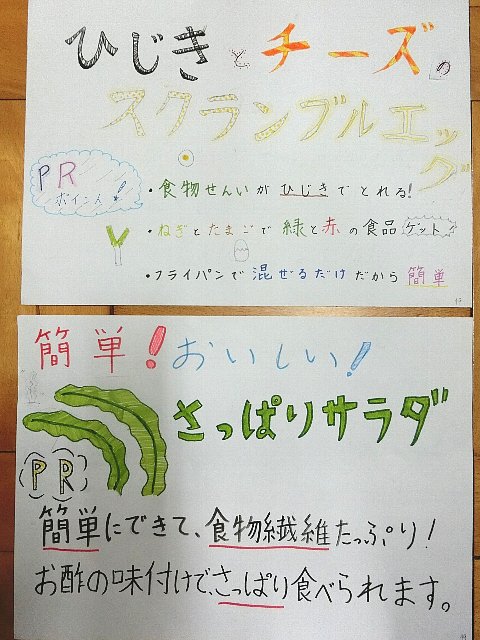 ひじきとチーズの
スクランブルエッグ
PR
ポイント!
・食物せんいがひじきでとれる!
・ねぎとたまごで緑と赤の食品ゲット
・フライパンで混ぜるだけだから簡単
簡単!おいしい!
さっぱりサラダ
PR
簡単にできて、食物繊維たっぷり!
お酢の味付けで、さっぱり食べられます。